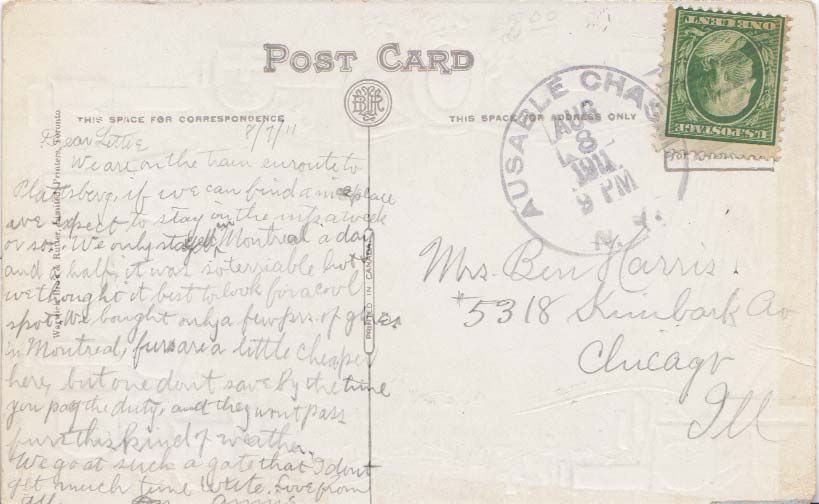 POST CARD
THIS SPACE FOR CORRESPONDENCE
THIS SPACE FOR ADDRESS ONLY
Warwick Bro's & Rutter, Limited, Printers, Toronto.
PRINTED IN CANADA
8/7/11
Dear Lettie
We are on the train enroute to
Plattsberg, if we can find a nice place
we expect to stay in the mts a week
or so. We only stayed in Montreal a day
and a half, it was so terriable hot
we thought it best to look for a cool
spot. We bought only a few prs. of gloves
in Montreal, furs are a little cheaper
here, but one dont save by the time
you pay the duty, and they wont pass
furs this kind of weather.
We go at such a gate that I dont
get much time write. Love from
All
Annie
AUSABLE CHAS
AUG
8
1911
9 PM
N.Y.
U.S. POSTAGE
ONE CENT
Mrs. Ben Harris.
#5318 Kimbark Av
Chicago
Ill